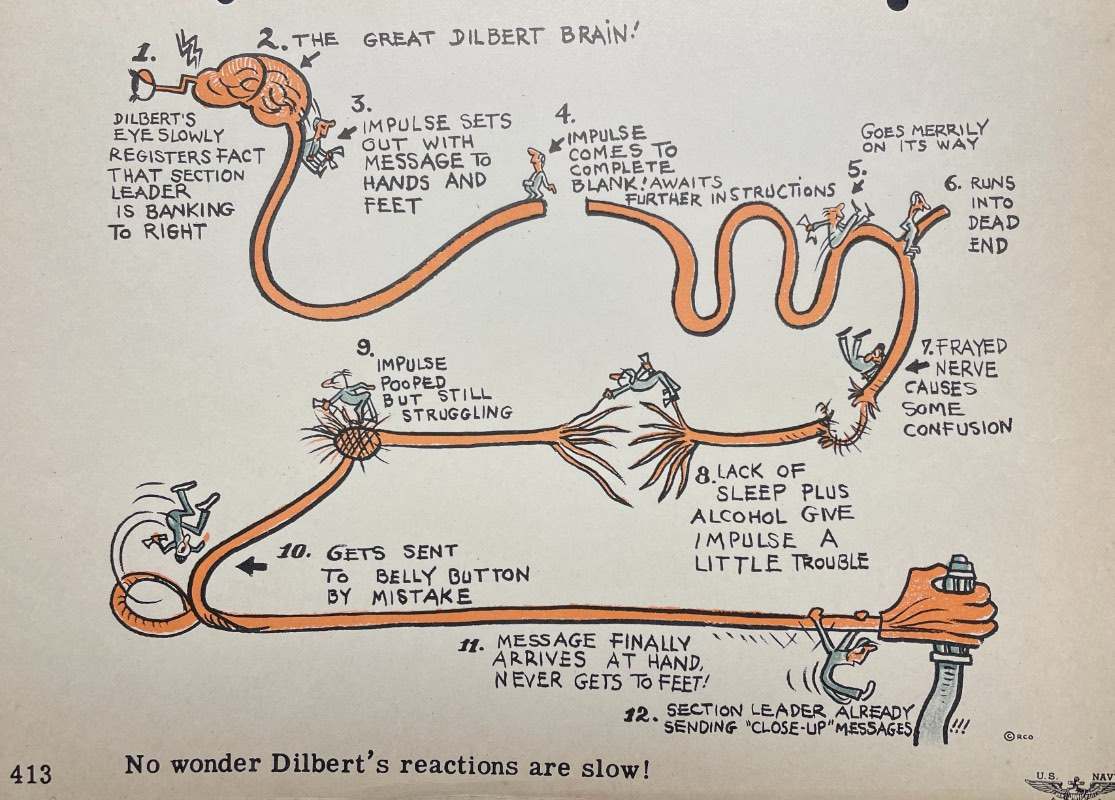 1.
2. THE GREAT DILBERT BRAIN!
DILBERT'S
EYE SLOWLY
REGISTERS FACT
THAT SECTION
LEADER
IS BANKING
TO RIGHT
3.
IMPULSE SETS
OUT WITH
MESSAGE TO
HANDS AND
FEET
4.
IMPULSE
COMES TO
COMPLETE
BLANK! AWAITS
FURTHER INSTRUCTIONS
GOES MERRILY
ON ITS WAY
5.
6. RUNS
INTO
DEAD
END
7. FRAYED
NERVE
CAUSES
SOME
CONFUSION
8. LACK OF
SLEEP PLUS
ALCOHOL GIVE
IMPULSE A
LITTLE TROUBLE
9.
IMPULSE
POOPED
BUT STILL
STRUGGLING
10. GETS SENT
TO BELLY BUTTON
BY MISTAKE
11. MESSAGE FINALLY
ARRIVES AT HAND,
NEVER GETS TO FEET!
12. SECTION LEADER ALREADY
SENDING "CLOSE-UP" MESSAGES!!!
©RCO
413
No wonder Dilbert's reactions are slow!
U.S. NAV